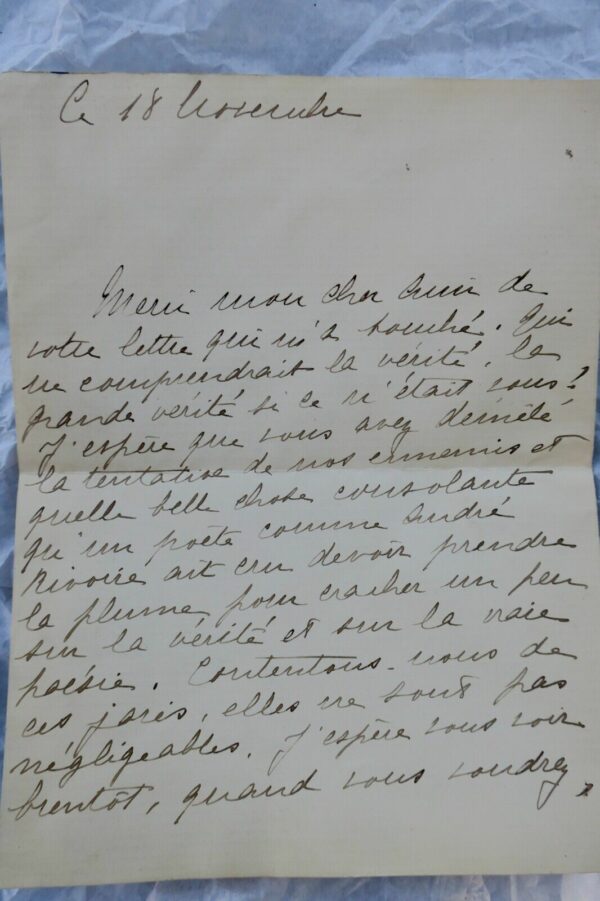 Ce 18 Novembre
Merci mon cher ami de
votre lettre qui m'a touché. Qui
ne comprendrait la vérité, la
grande vérité si ce n'était vous?
J'espère que vous avez démêlé
la tentative de nos ennemis et
quelle belle chose consolante
qu'un poète comme André
Rivoire ait cru devoir prendre
la plume pour cracher un peu
sur la vérité et sur la vraie
poésie. Contentons-nous de
ces joies, elles ne sont pas
négligeables. J'espère vous voir
bientôt, quand vous voudrez,